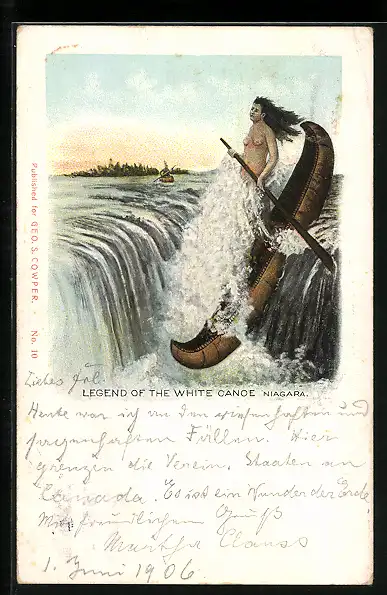 Published for GEO. S. COWPER.    No. 10
LEGEND OF THE WHITE CANOE NIAGARA.
Liebes
Heute war ich an den riesenhaften und
sagenhaften Fällen. Hier
grenzen die Verein. Staaten an
Canada. Es ist ein Wunder der Erde.
Mit freundlichem Gruß
Martha Clauss
1. Juni 1906